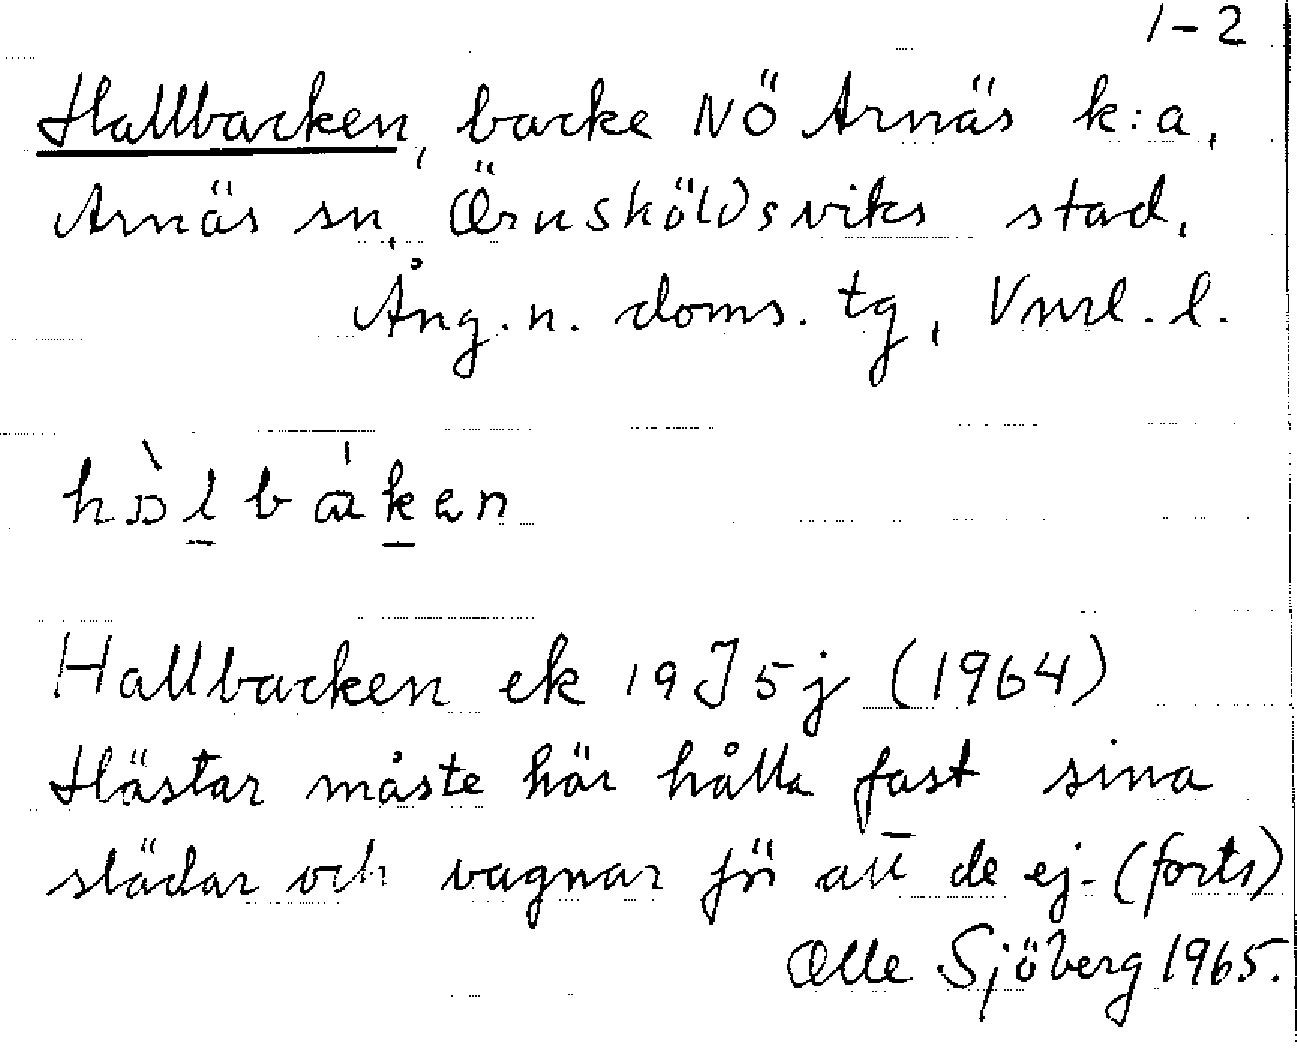 1-2
Hallbacken, backe NÖ Arnäs k:a,
Arnäs sn, Örnsköldsviks stad,
Ång. n. doms. tg, Vnrl. l.
Hallbacken ek 19J5j (1964)
Hästar måste här hålla fast sina
slädar och vagnar för att de ej - (forts)
Olle Sjöberg 1965.